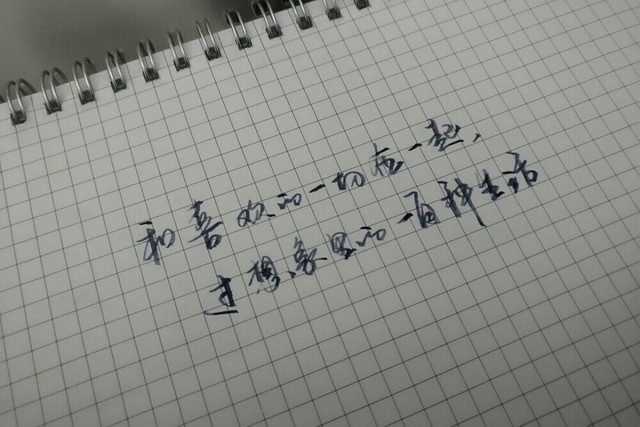 和喜欢的一切在一起,
过想象中的一百种生活